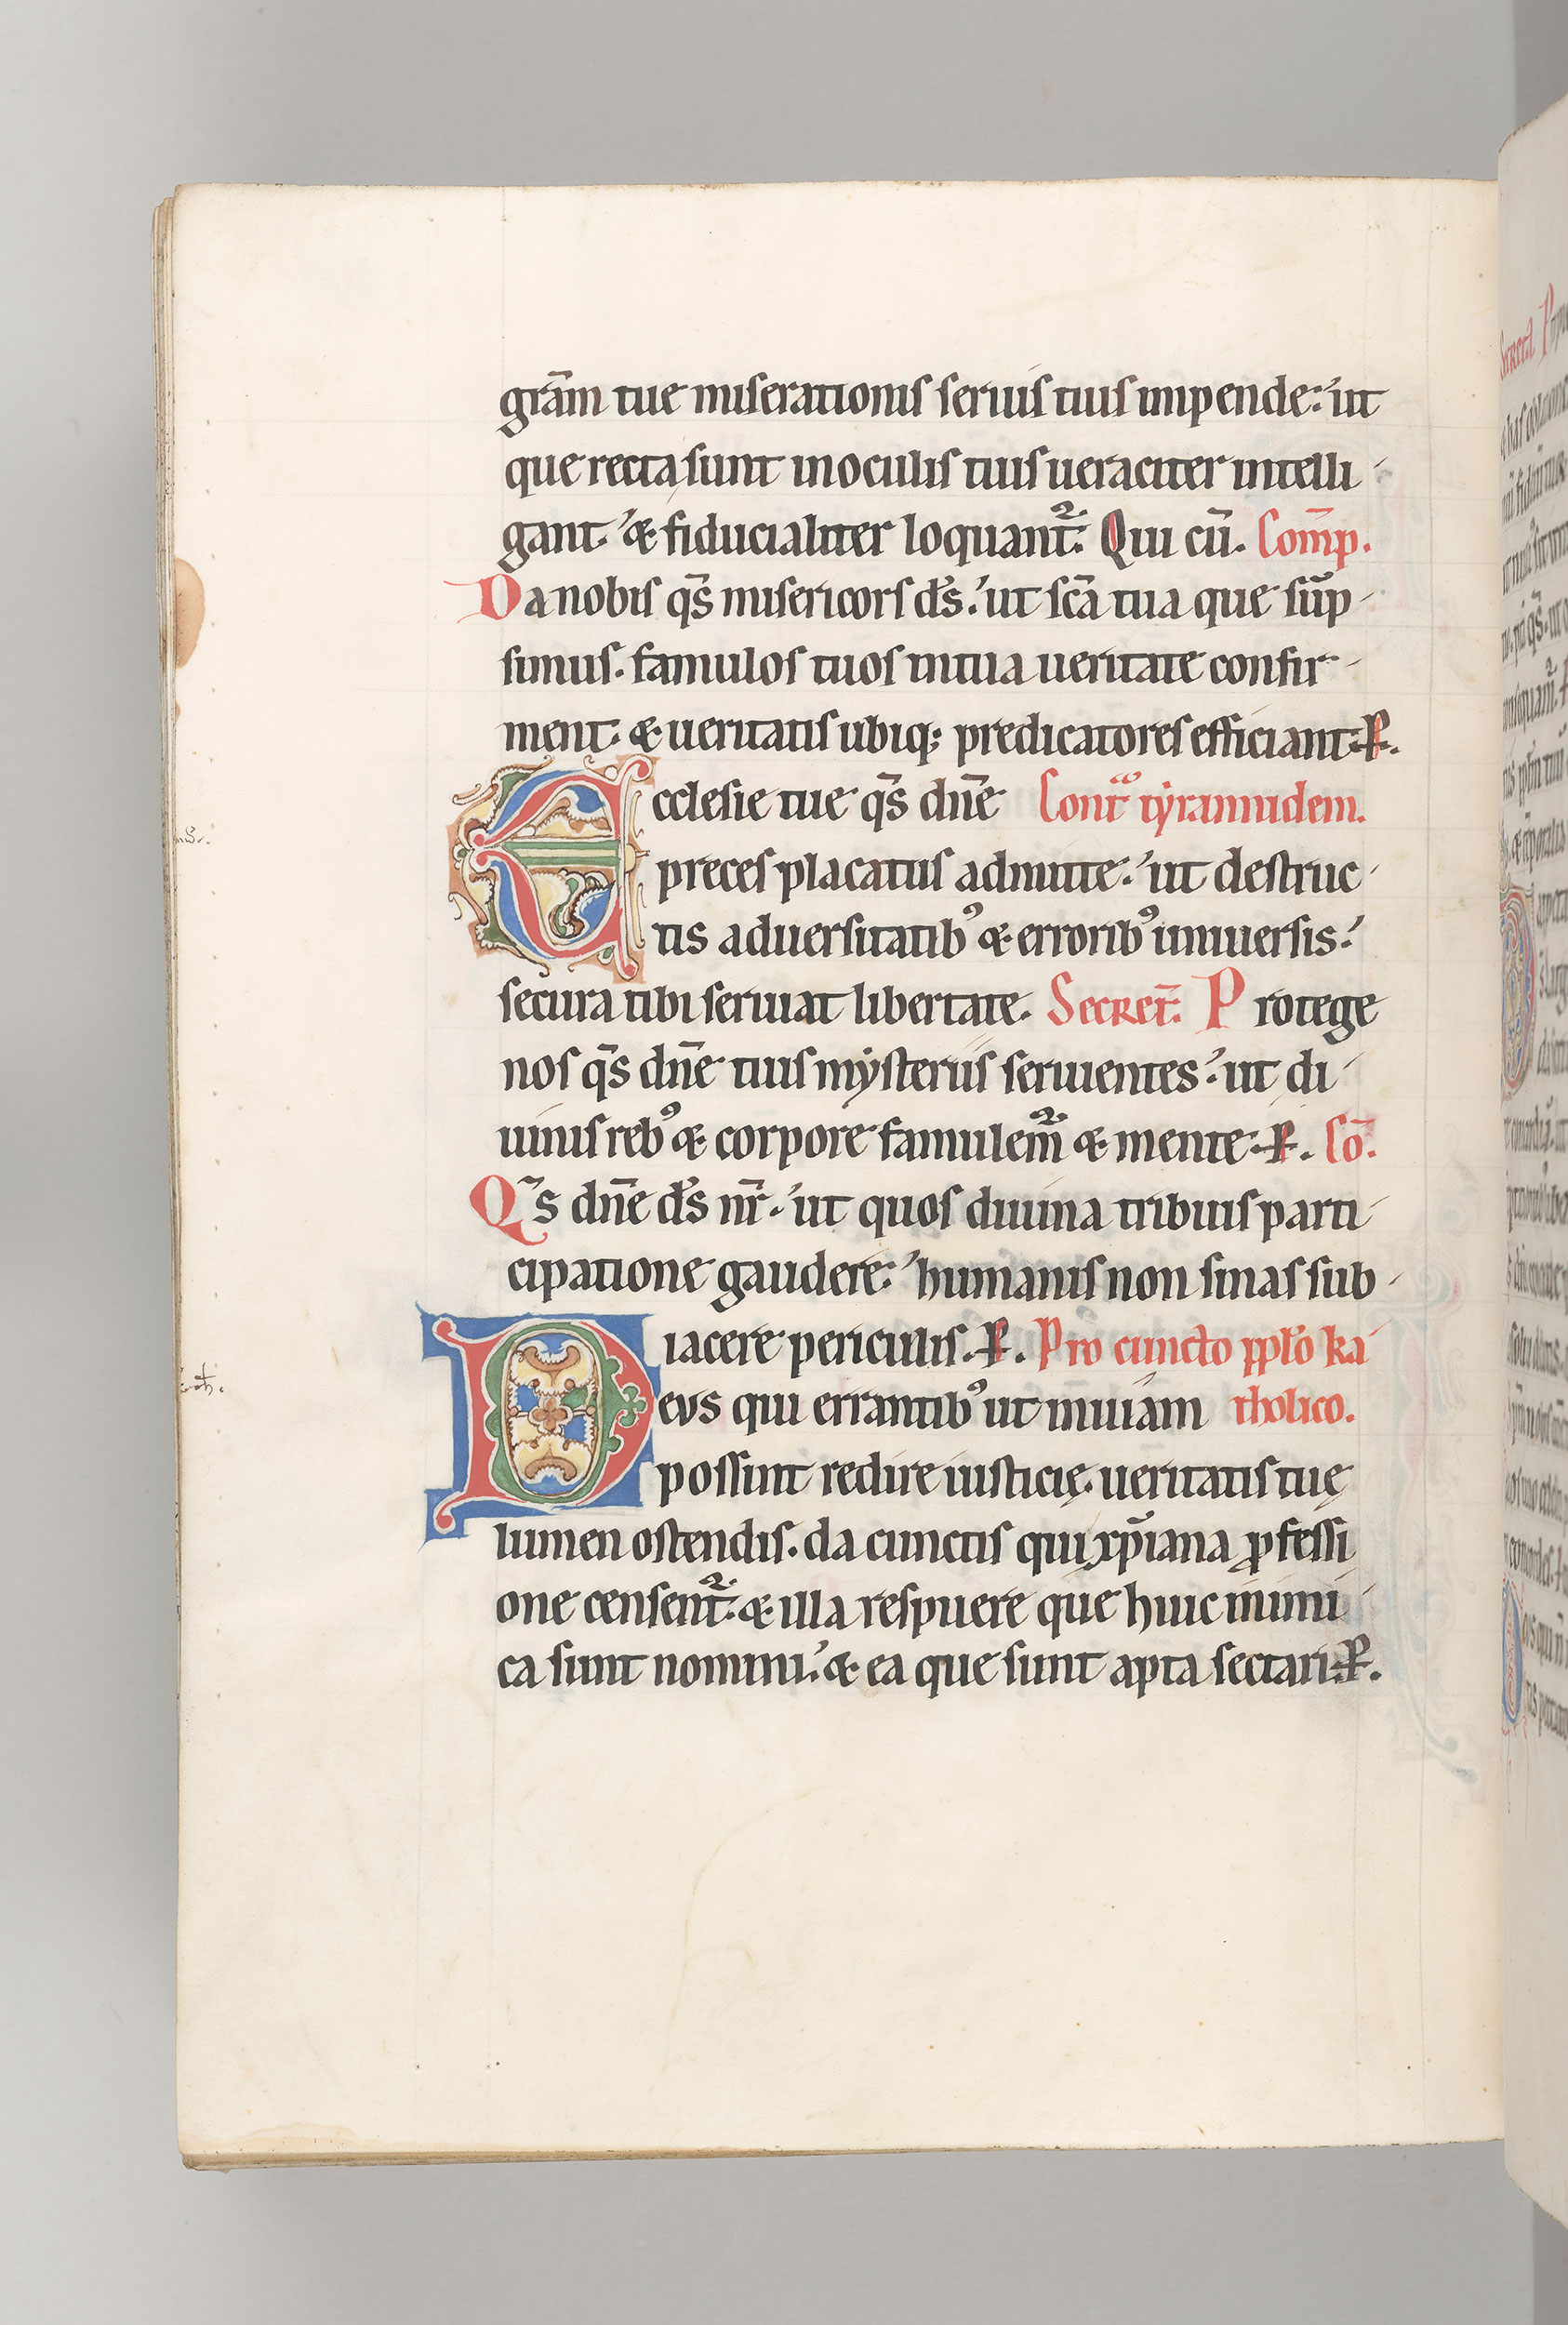 grām tue miserationis seruis tuis impende: ut
que recta sunt in oculis tuis ueraciter intelli-
gant. & fiducialiter loquant᷑. Qui cū. Com̄p.
Da nobis qs̄ misericors ds̄. ut scā tua que sūp-
simus. famulos tuos in tua ueritate confir-
ment. & ueritatis ubiq; predicatores efficiant. P.
Ecclesie tue qs̄ dn̄e Contᷓ tẏrannidem.
preces placatus admitte. ut destruc-
tis aduersitatibꝰ & erroribꝰ uniuersis.
secura tibi seruiat libertate. Secret̄. Protege
nos qs̄ dn̄e tuis mẏsteriis seruientes. ut di-
uinis rebꝰ & corpore famulem᷑ & mente. P. Cō.
Qs̄ dn̄e ds̄ nr̄. ut quos diuina tribuis parti-
cipatione gaudere. humanis non sinas sub-
iacere periculis. P. Pro cuncto pplo ka-
Devs qui errantibꝰ ut in uiam tholico.
possint redire iusticię. ueritatis tuę
lumen ostendis. da cunctis qui xp̄iana ꝓfessi-
one censent᷑. & illa respuere que huic inimi-
ca sunt nomini. & ea que sunt apta sectari. P.